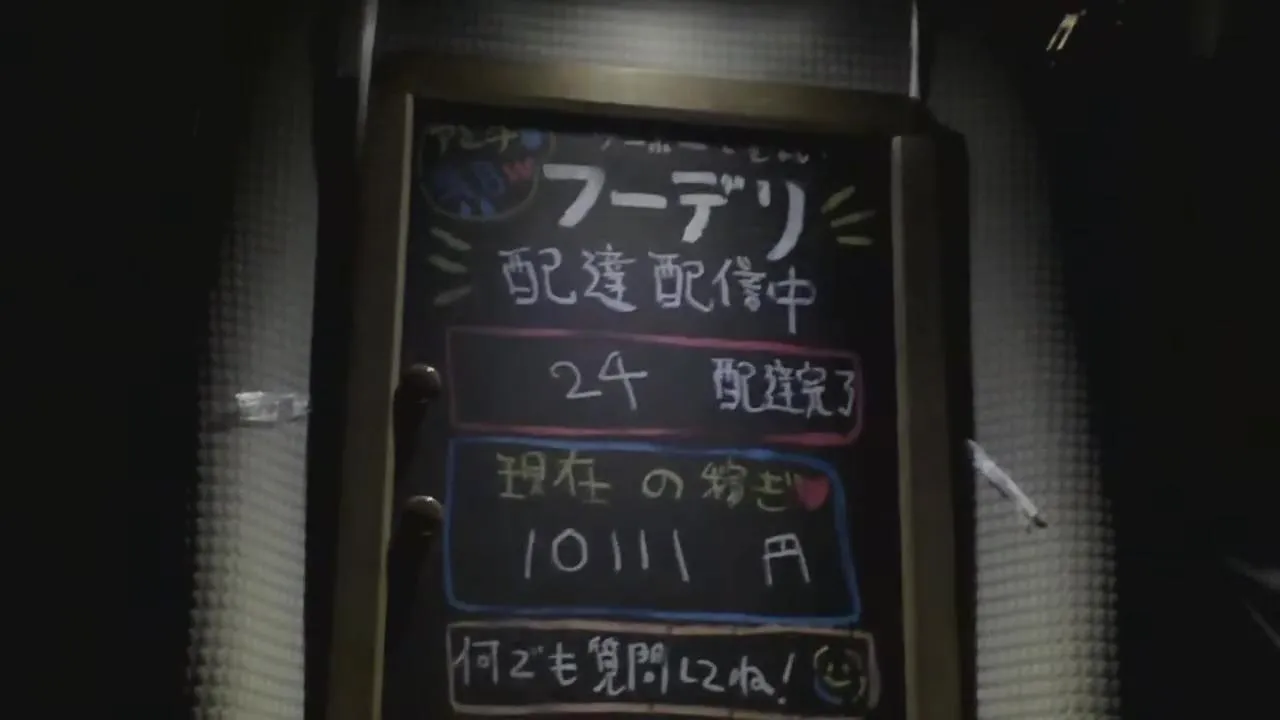 アンチ
フーデリ
配達配信中
24 配達完了
現在の稼ぎ
10111 円
何でも質問してね!